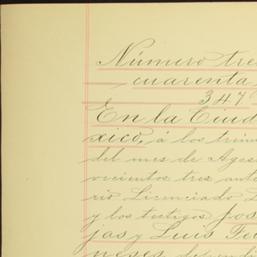 Número tre
cuarenta
347
En la Ciud
xico, á los trein
del mes de Agos
vecientos tres ante
rio Licenciado
y los testigos Jos
jas y Luis F